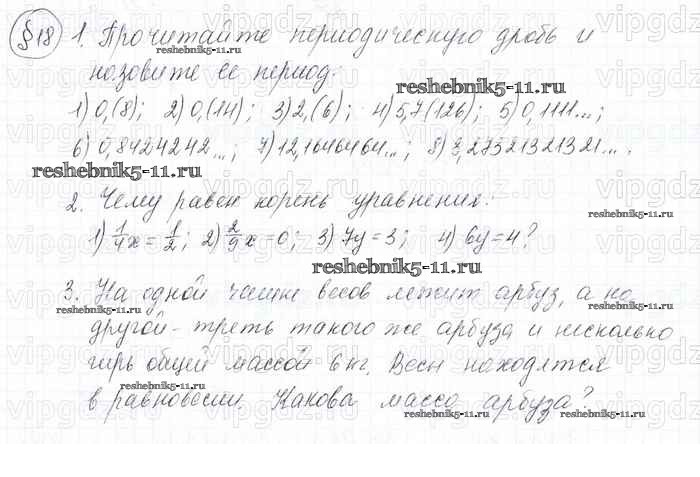 §18 1. Прочитайте периодическую дробь и
назовите ее период:
1) 0,(8); 2) 0,(14); 3) 2,(6); 4) 5,7(126); 5) 0,1111...;
6) 0,8424242...; 7) 12,1646464...; 8) 3,27321321321... .
2. Чему равен корень уравнения:
1) 1/4 x = 1/2; 2) 2/9 x = 0; 3) 7y = 3; 4) 6y = 4?
3. На одной чашке весов лежит арбуз, а на
другой - треть такого же арбуза и несколько
гирь общей массой 6 кг. Весы находятся
в равновесии. Какова масса арбуза?
reshebnik5-11.ru
reshebnik5-11.ru
reshebnik5-11.ru
reshebnik5-11.ru
reshebnik5-11.ru
reshebnik5-11.ru
reshebnik5-11.ru
reshebnik5-11.ru
reshebnik5-11.ru